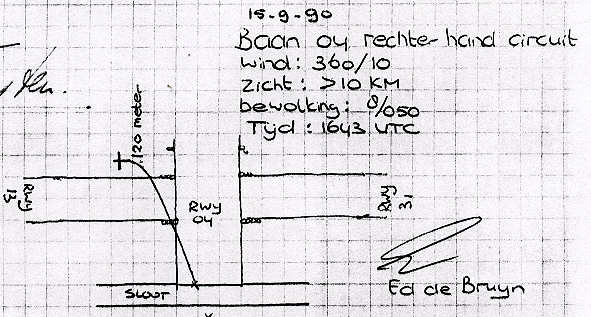 15-9-90
Baan 04 rechter-hand circuit
wind: 360/10
zicht: >10 KM
bewolking: 8/050
Tijd: 1643 UTC
120 meter
Rwy 13
Rwy
04
Rwy 31
SLOOT
Ed de Bruyn